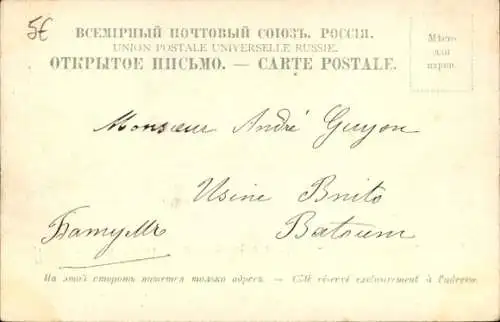 5€
ВСЕМІРНЫЙ ПОЧТОВЫЙ СОЮЗЪ. РОССІЯ.
UNION POSTALE UNIVERSELLE RUSSIE.
ОТКРЫТОЕ ПИСЬМО. — CARTE POSTALE.
Мѣсто
для
марки.
Monsieur André Guyon
Usine Bnito
Batoum
Батумъ
На этой сторонѣ пишется только адресъ. — Côté réservé exclusivement à l'adresse.